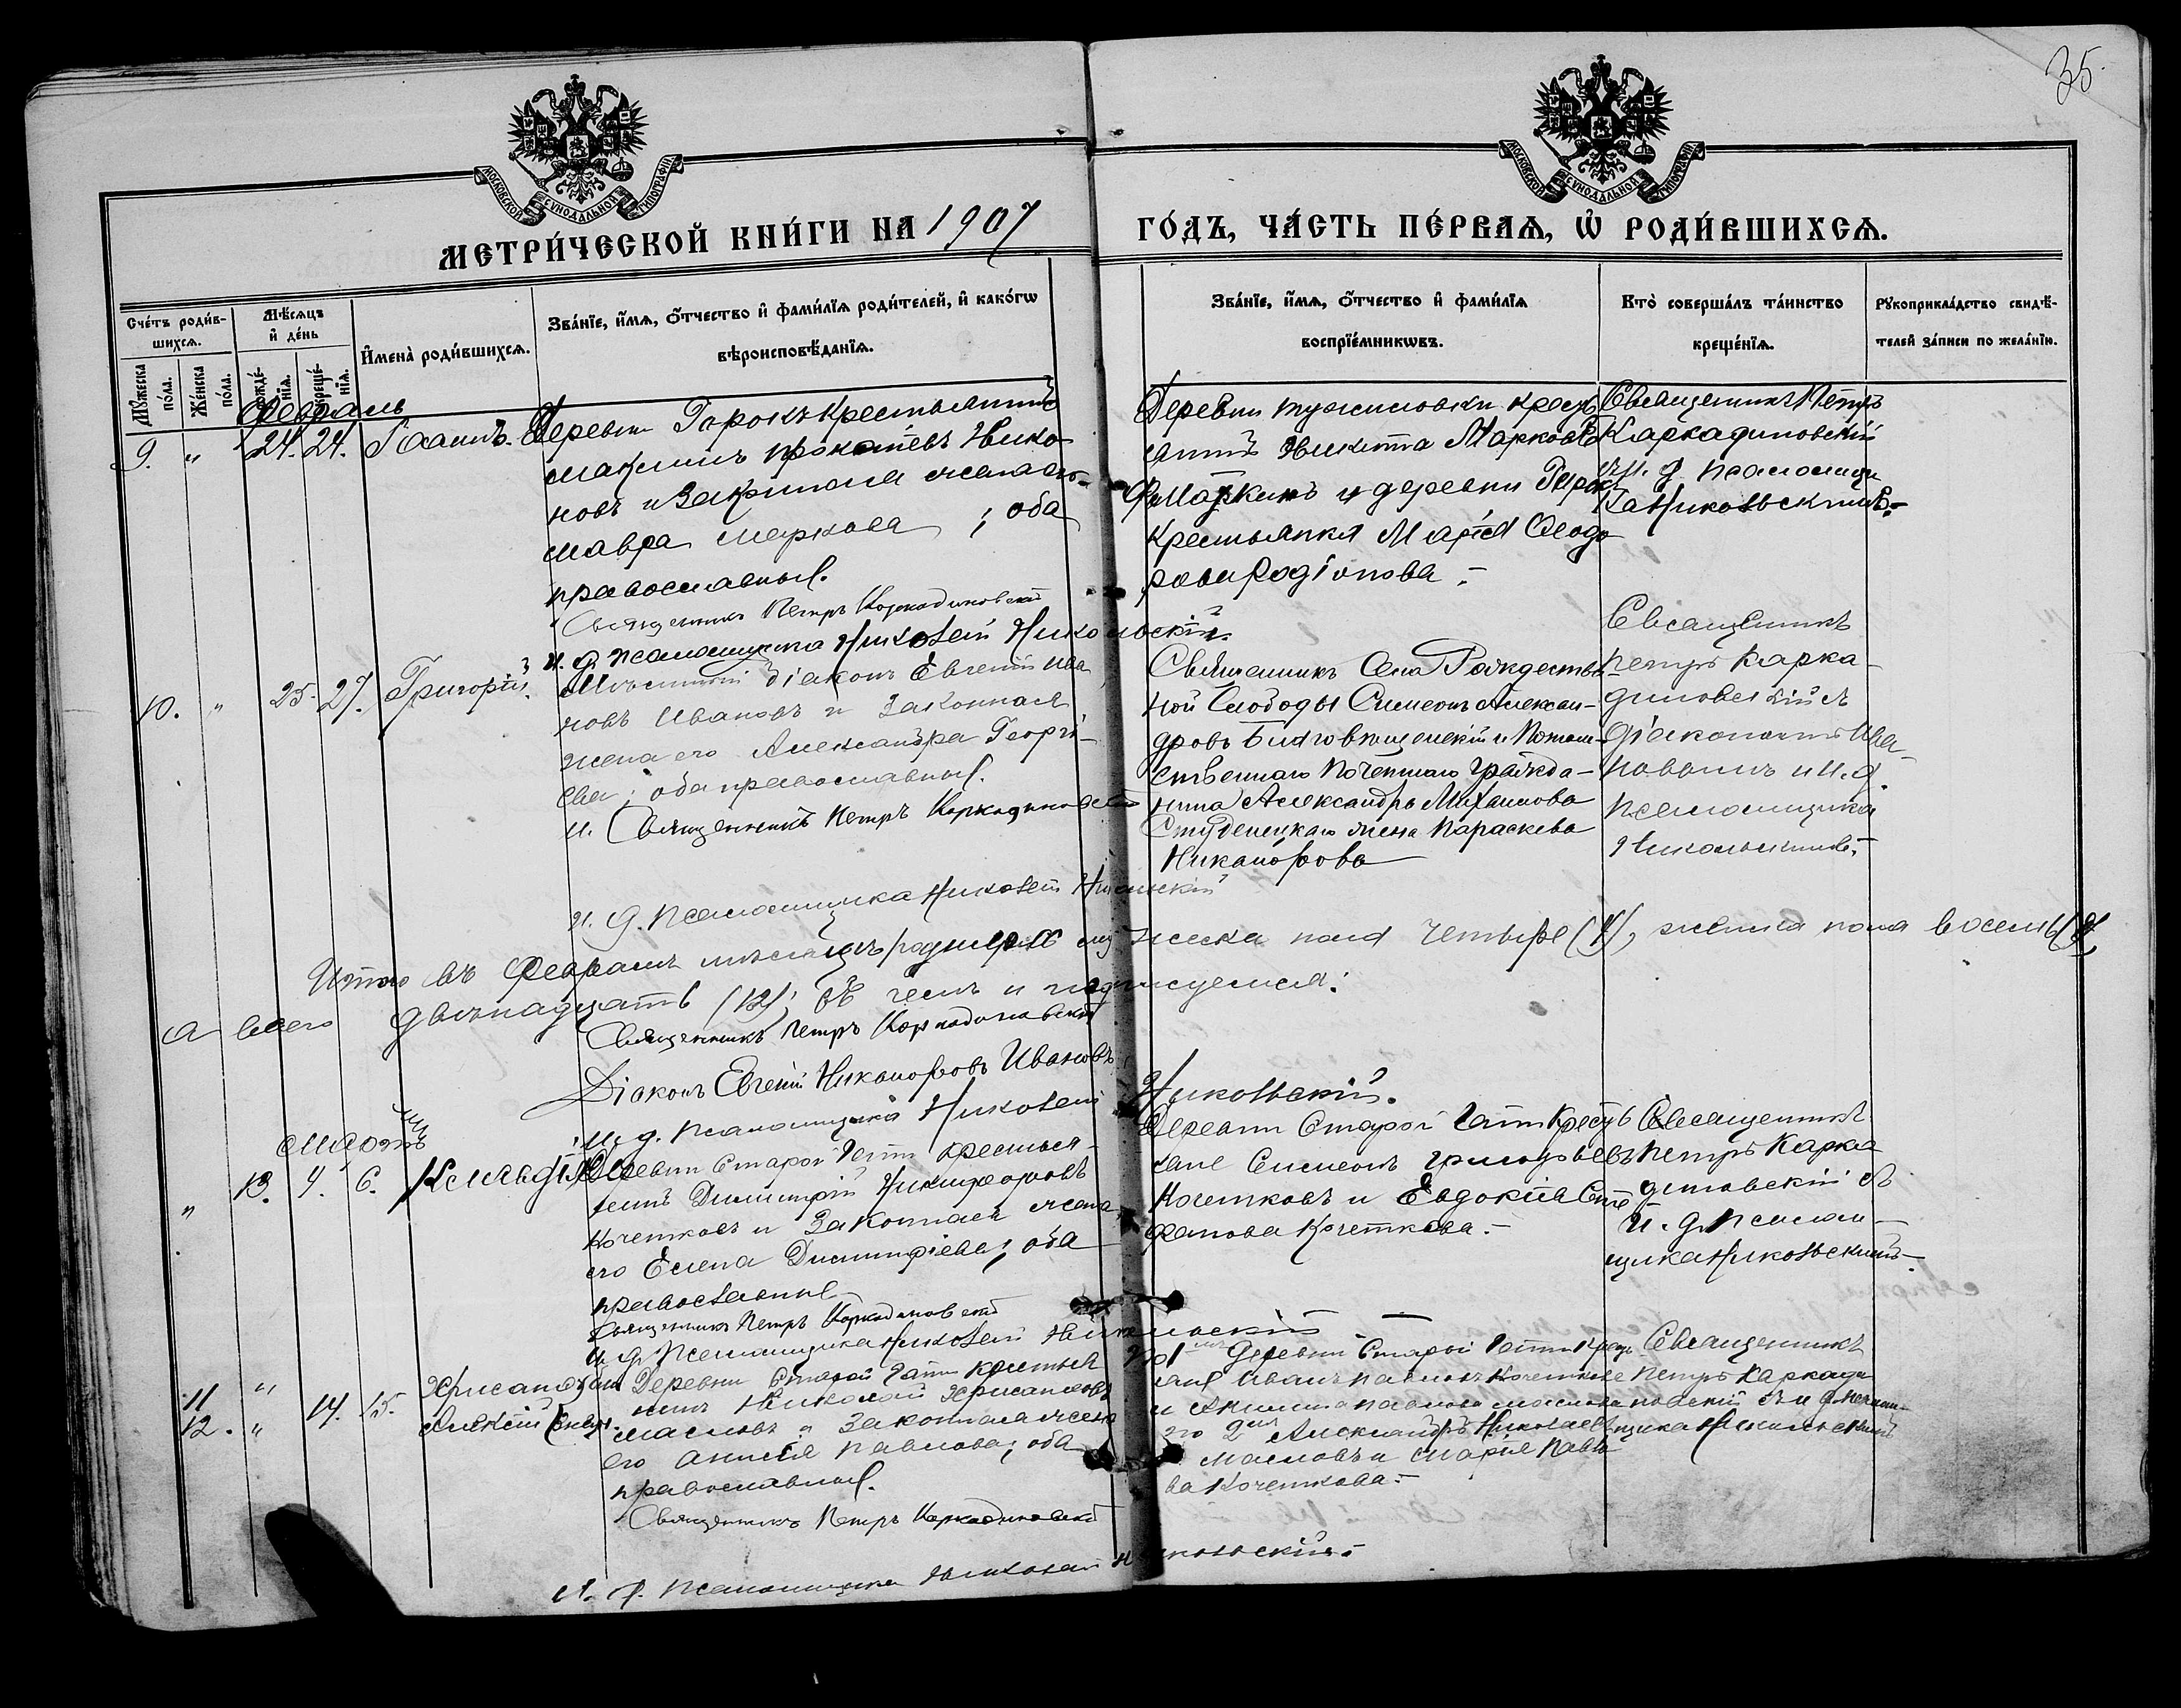 35.
МОСКОВСКОЙ СѴНОДАЛЬНОЙ ТИПОГРАФІИ
МОСКОВСКОЙ СѴНОДАЛЬНОЙ ТИПОГРАФІИ
МЕТРИ́ЧЕСКОЙ КНИ́ГИ НА 1907
ГО́ДЪ, ЧА́СТЬ ПЕ́РВАѦ, Ѡ҆ РОДИ́ВШИХСѦ.
Сче́тъ роди́в-
шихсѧ.
Мѹ́жеска по́ла.
Же́нска по́ла.
Мѣ́сѧцъ
и҆ де́нь
рожде́-
нїѧ.
креще́-
нїѧ.
И҆мена̀ роди́вшихсѧ.
Зва́нїе, и҆́мѧ, ѻ҆́тчество и҆ фами́лїѧ роди́телей, и҆ како́гѡ
вѣроисповѣ́данїѧ.
Зва́нїе, и҆́мѧ, ѻ҆́тчество и҆ фами́лїѧ
воспрїе́мникѡвъ.
Кто̀ соверша́лъ та́инство
креще́нїѧ.
Рѹкоприкла́дство свидѣ́-
телей за́писи по жела́нїю.
Февраль
9. " 24. 24. Іоаннъ.
Деревни Горокъ крестьянинъ
Максимъ Прокопіевъ Нико-
новъ и законная жена его
Мавра Маркова ; оба
православныя.
Священникъ Петръ Каркадиновскій
И. д. псаломщика Николай Никольскій.
Деревни кресть
янинъ Никита Марковъ
и деревни Горокъ
крестьянка Марія Ѳеодо
рова Родіонова.-
Священникъ Петръ
Каркадиновскій
съ и. д. псаломщи
ка Никольскимъ.-
10. " 25. 27. Григорій.
Мѣстный діаконъ Евгеній Ива
новъ Ивановъ и законная
жена его Александра Георгі-
ева; оба православныя.
Священникъ Петръ Каркадиновскій
И. д. псаломщика Николай Никольскій
Священникъ села Рождествен-
ной Слободы Симеонъ Алексан-
дровъ Благовѣщенскій и Потом-
ственнаго почетнаго гражда-
нина Александра Михаилова
Студенецкаго жена Параскева
Никанорова
Священникъ
Петръ Карка-
диновскій съ
діакономъ Ива-
новымъ и и. д.
псаломщика
Никольскимъ.-
Итого въ Февралѣ мѣсяцѣ родилось мужеска пола четыре (4), женска пола восемь (8),
а всего двѣнадцать (12); въ чемъ и подписуемся:
Священникъ Петръ Каркадиновскій
Діаконъ Евгеній Никаноровъ Ивановъ
И. д. псаломщика Николай Никольскій.
Мартъ
" 13. 4. 6. Клавдія
Деревни Старой Гати крестья-
нинъ Димитрій Никифоровъ
Кочетковъ и законная жена
его Елена Димитріева; оба
православные
Священникъ Петръ Каркадиновскій
И. д. псаломщика Николай Никольскій
Деревни Старой Гати кресть
яне Симеонъ Григорьевъ
Кочетковъ и Евдокія Сте
фанова Кочеткова.-
Священникъ
Петръ Карка
диновскій съ
и. д. псалом-
щика Никольскимъ.-
11 " 14. 15. Хрисанфъ и
12. " Алексій
Деревни Старой Гати крестья
нинъ Николай Хрисанфовъ
Масловъ и законная жена
его Анисія Павлова; оба
православныя.
Священникъ Петръ Каркадиновскій
И. д. псаломщика Николай Никольскій.-
Деревни Старой Гати кресть
яне Иванъ Павловъ Кочетковъ
и Павлова Маслова
2го Александръ Николаевъ
Масловъ и Марія Павло
ва Кочеткова.-
Священникъ
Петръ Каркади
новскій съ и. д. псалом-
щика Никольскимъ